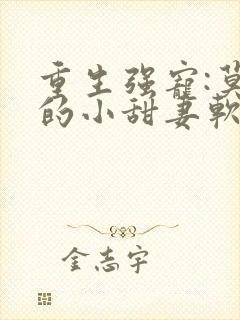 重生强寵:莫
的小甜妻軟
金志宇